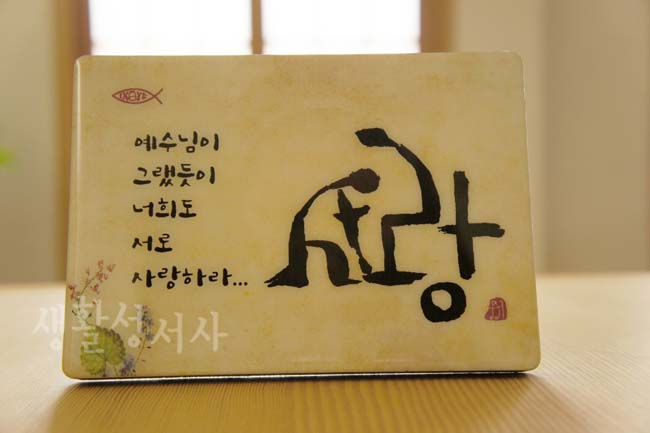 ΙΧΘΥΣ
예수님이
그랬듯이
너희도
서로
사랑하라...
사랑
생활성서사